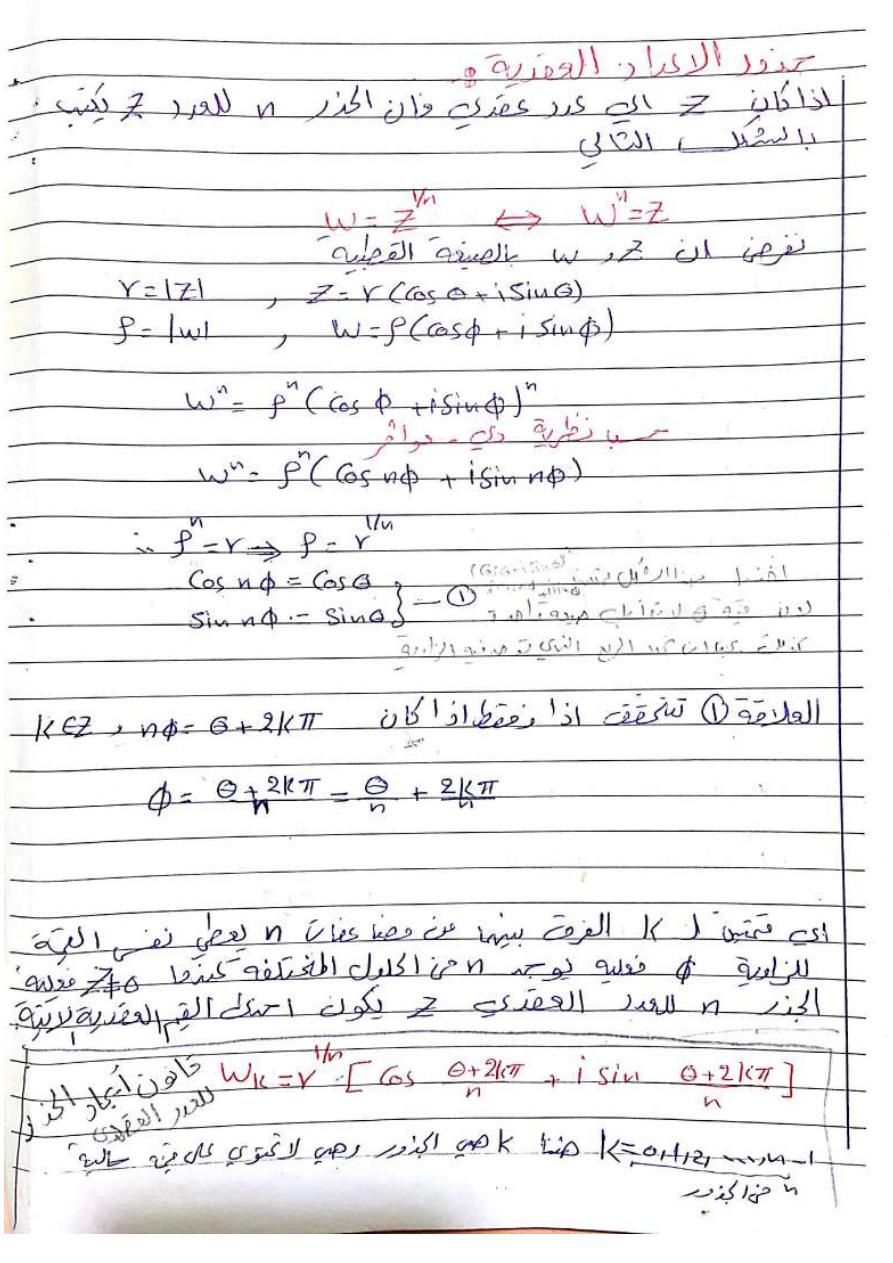 جذور الاعداد العقدية :
اذا كان Z اي عدد عقدي فان الجذر n للعدد Z يكتب
بالشكل التالي
W = Z^{1/n} ⟺ W^n = Z
نفرض ان Z و w بالصيغة القطبية
r = |Z| , Z = r (Cos θ + i Sin θ)
ρ = |w| , W = ρ (cos ϕ + i Sin ϕ)
W^n = ρ^n (Cos ϕ + i Sin ϕ)^n
حسب نظرية دي - موافر
W^n = ρ^n (Cos nϕ + i Sin nϕ)
∴ ρ^n = r ⇒ ρ = r^{1/n}
Cos nϕ = Cos θ
Sin nϕ = Sin θ } — ①
العلاقة ① تتحقق اذا وفقط اذا كان nϕ = θ + 2kπ , k ∈ Z
ϕ = θ + 2kπ / n = θ / n + 2kπ / n
اي قيمتين ل k الفرق بينهما من مضاعفات n يعطي نفس القيمة
للزاوية ϕ فعليه يوجد n من الحلول المختلفه عندما Z ≠ 0 فعليه
الجذر n للعدد العقدي Z يكون احدى القيم العقدية الاتية
قانون أيجاد الجذر
للعدد العقدي
W_k = r^{1/n} [ Cos θ + 2kπ / n + i sin θ + 2kπ / n ]
k = 0,1,2, ..., n-1 هنا k هي الجذور وهي لا تحتوي على قيمة سالبة
n من الجذور